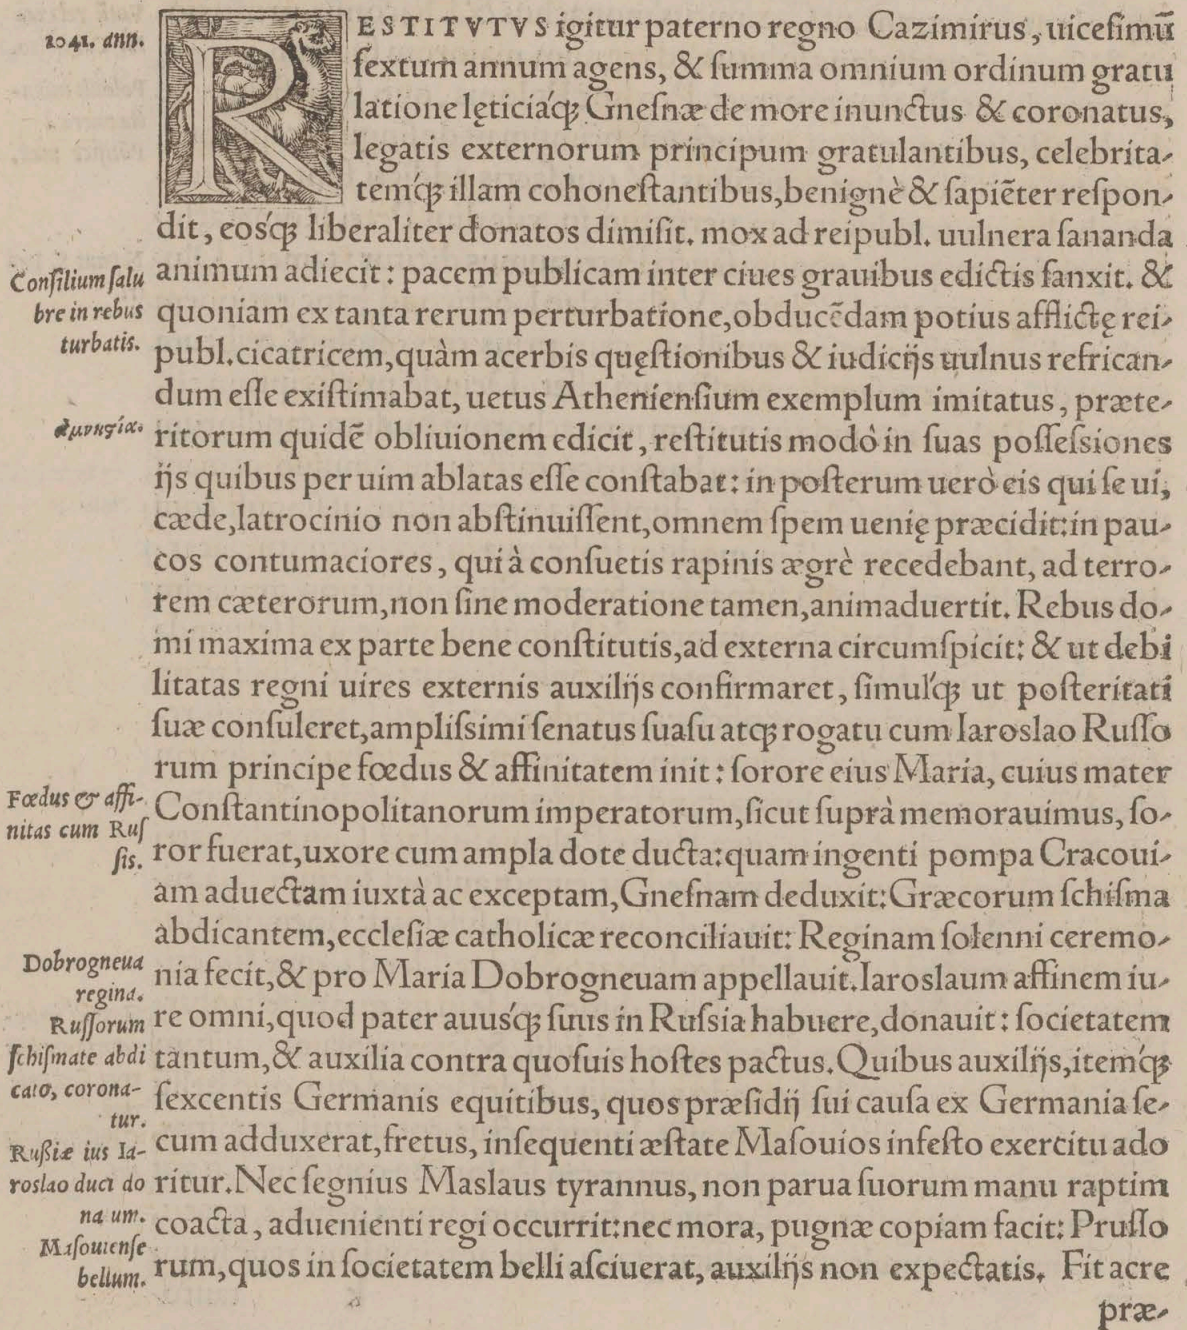 1041. ann.
RESTITVTVS igitur paterno regno Cazimirus, uiceſimũ
ſextum annum agens, & ſumma omnium ordinum gratu
latione lęticiaq́ꝫ Gneſnæ de more inunctus & coronatus,
legatis externorum principum gratulantibus, celebrita-
temq́ꝫ illam cohoneſtantibus, benignè & ſapiẽter reſpon-
dit, eosq́ꝫ liberaliter donatos dimiſit. mox ad reipubl. uulnera ſananda
animum adiecit: pacem publicam inter ciues grauibus edictis ſanxit. &
quoniam ex tanta rerum perturbatione, obducẽdam potius afflictę rei-
publ. cicatricem, quàm acerbis quęſtionibus & iudicijs uulnus refrican-
dum eſſe exiſtimabat, uetus Athenienſium exemplum imitatus, præte-
ritorum quidẽ obliuionem edicit, reſtitutis modò in ſuas poſſeſsiones
ijs quibus per uim ablatas eſſe conſtabat: in poſterum uerò eis qui ſe ui,
cæde, latrocinio non abſtinuiſſent, omnem ſpem uenię præcidit: in pau-
cos contumaciores, qui à conſuetis rapinis ægrè recedebant, ad terro-
rem cæterorum, non ſine moderatione tamen, animaduertit. Rebus do-
mi maxima ex parte bene conſtitutis, ad externa circumſpicit: & ut debi
litatas regni uires externis auxilijs confirmaret, ſimulq́ꝫ ut poſteritati
ſuæ conſuleret, ampliſsimi ſenatus ſuaſu atqꝫ rogatu cum Iaroslao Ruſſo
rum principe fœdus & affinitatem init: ſorore eius Maria, cuius mater
Conſtantinopolitanorum imperatorum, ſicut ſuprà memorauimus, ſo-
ror fuerat, uxore cum ampla dote ducta: quam ingenti pompa Cracoui-
am aduectam iuxtà ac exceptam, Gneſnam deduxit: Græcorum ſchiſma
abdicantem, eccleſiæ catholicæ reconciliauit: Reginam ſolenni ceremo-
nia fecit, & pro Maria Dobrogneuam appellauit. Iaroslaum affinem iu-
re omni, quod pater auusq́ꝫ ſuus in Ruſsia habuere, donauit: ſocietatem
tantum, & auxilia contra quoſuis hoſtes pactus. Quibus auxilijs, itemq́ꝫ
ſexcentis Germanis equitibus, quos præſidij ſui cauſa ex Germania ſe-
cum adduxerat, fretus, inſequenti æſtate Maſouios infeſto exercitu ado
ritur. Nec ſegnius Maslaus tyrannus, non parua ſuorum manu raptim
coacta, aduenienti regi occurrit: nec mora, pugnæ copiam facit: Pruſſo
rum, quos in ſocietatem belli aſciuerat, auxilijs non expectatis. Fit acre
præ-
Conſilium ſalu
bre in rebus
turbatis.
ἀμνηςία.
Fœdus & affi-
nitas cum Ruſ
ſis.
Dobrogneua
regina.
Ruſſorum
ſchiſmate abdi
cato, corona-
tur.
Rußiæ ius Ia-
roslao duci do
na um.
Maſouienſe
bellum.